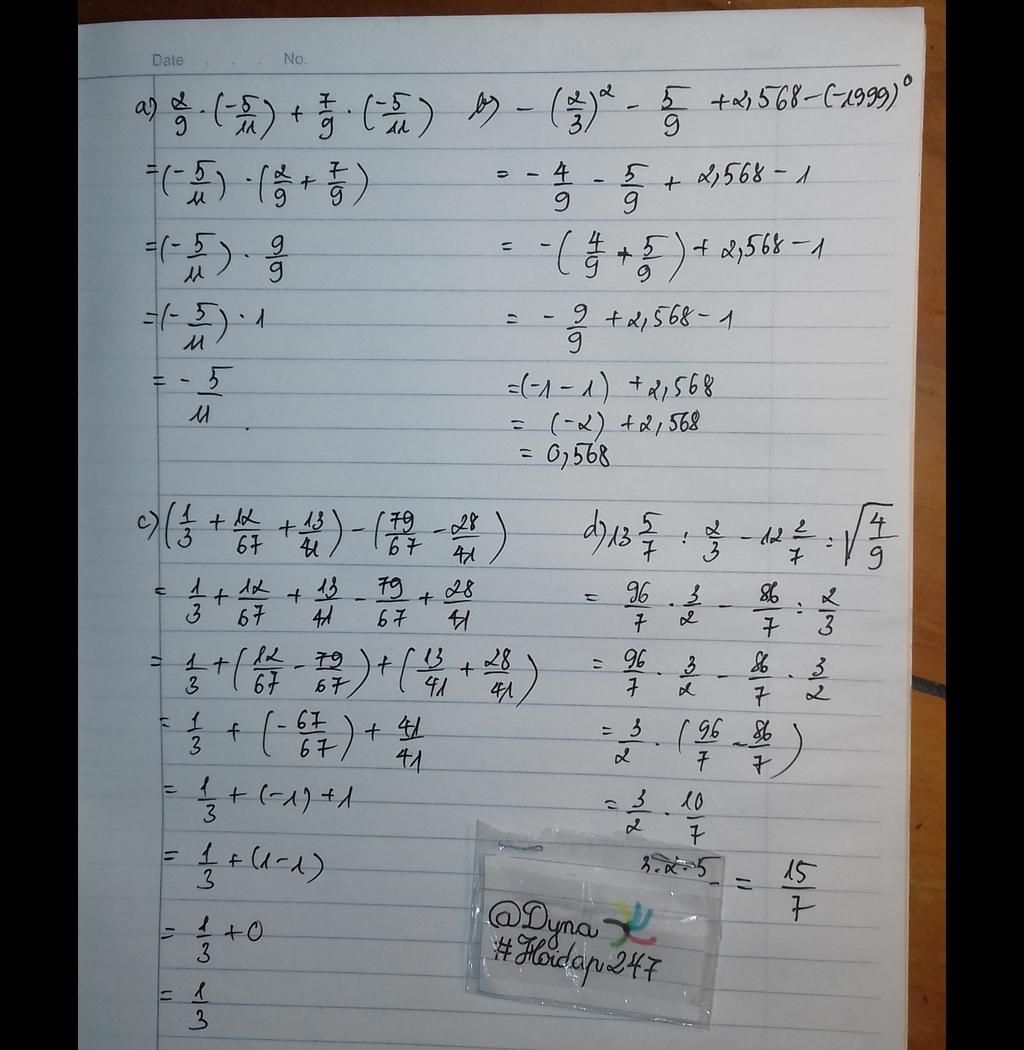 Date . . . No.
a) 2/9 . (-5/11) + 7/9 . (-5/11)
= (-5/11) . (2/9 + 7/9)
= (-5/11) . 9/9
= (-5/11) . 1
= -5/11
b) - (2/3)² - 5/9 + 2,568 - (-1999)⁰
= - 4/9 - 5/9 + 2,568 - 1
= - (4/9 + 5/9) + 2,568 - 1
= - 9/9 + 2,568 - 1
= (-1 - 1) + 2,568
= (-2) + 2,568
= 0,568
c) (1/3 + 12/67 + 13/41) - (79/67 - 28/41)
= 1/3 + 12/67 + 13/41 - 79/67 + 28/41
= 1/3 + (12/67 - 79/67) + (13/41 + 28/41)
= 1/3 + (-67/67) + 41/41
= 1/3 + (-1) + 1
= 1/3 + (1 - 1)
= 1/3 + 0
= 1/3
d) 13 5/7 : 2/3 - 12 2/7 : √4/9
= 96/7 . 3/2 - 86/7 : 2/3
= 96/7 . 3/2 - 86/7 . 3/2
= 3/2 . (96/7 - 86/7)
= 3/2 . 10/7
3.2.5 = 15/7
@Dyna
#Hoidap247